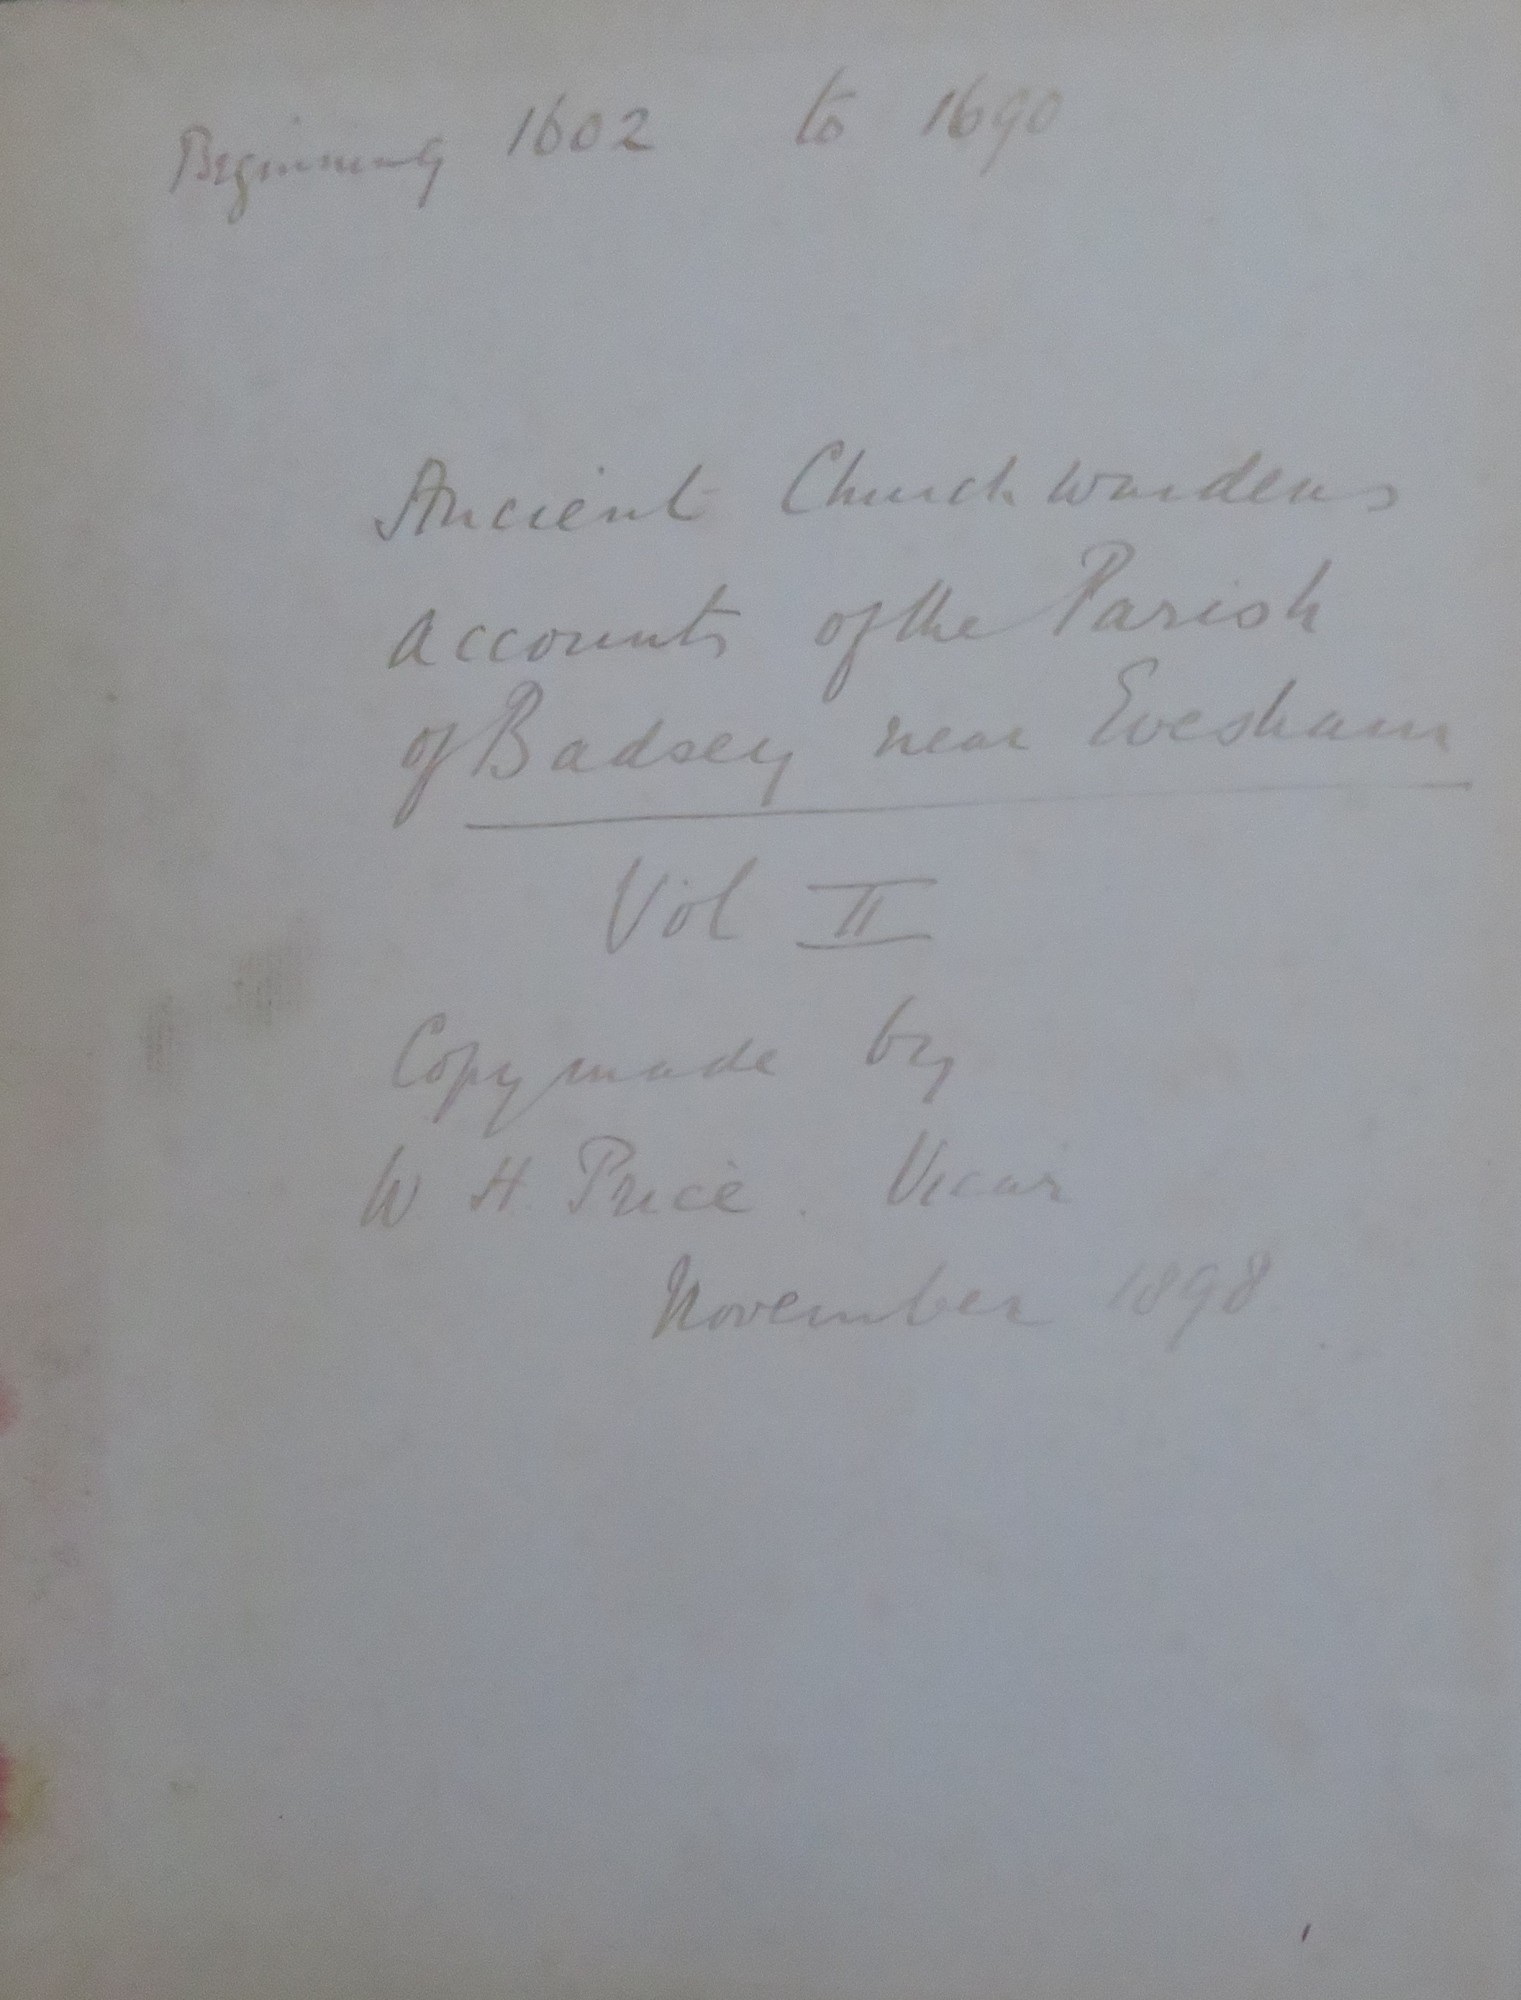 Beginning 1602 to 1690
Ancient Churchwardens
accounts of the Parish
of Badsey near Evesham
Vol II
Copy made by
W H Price. Vicar
November 1898